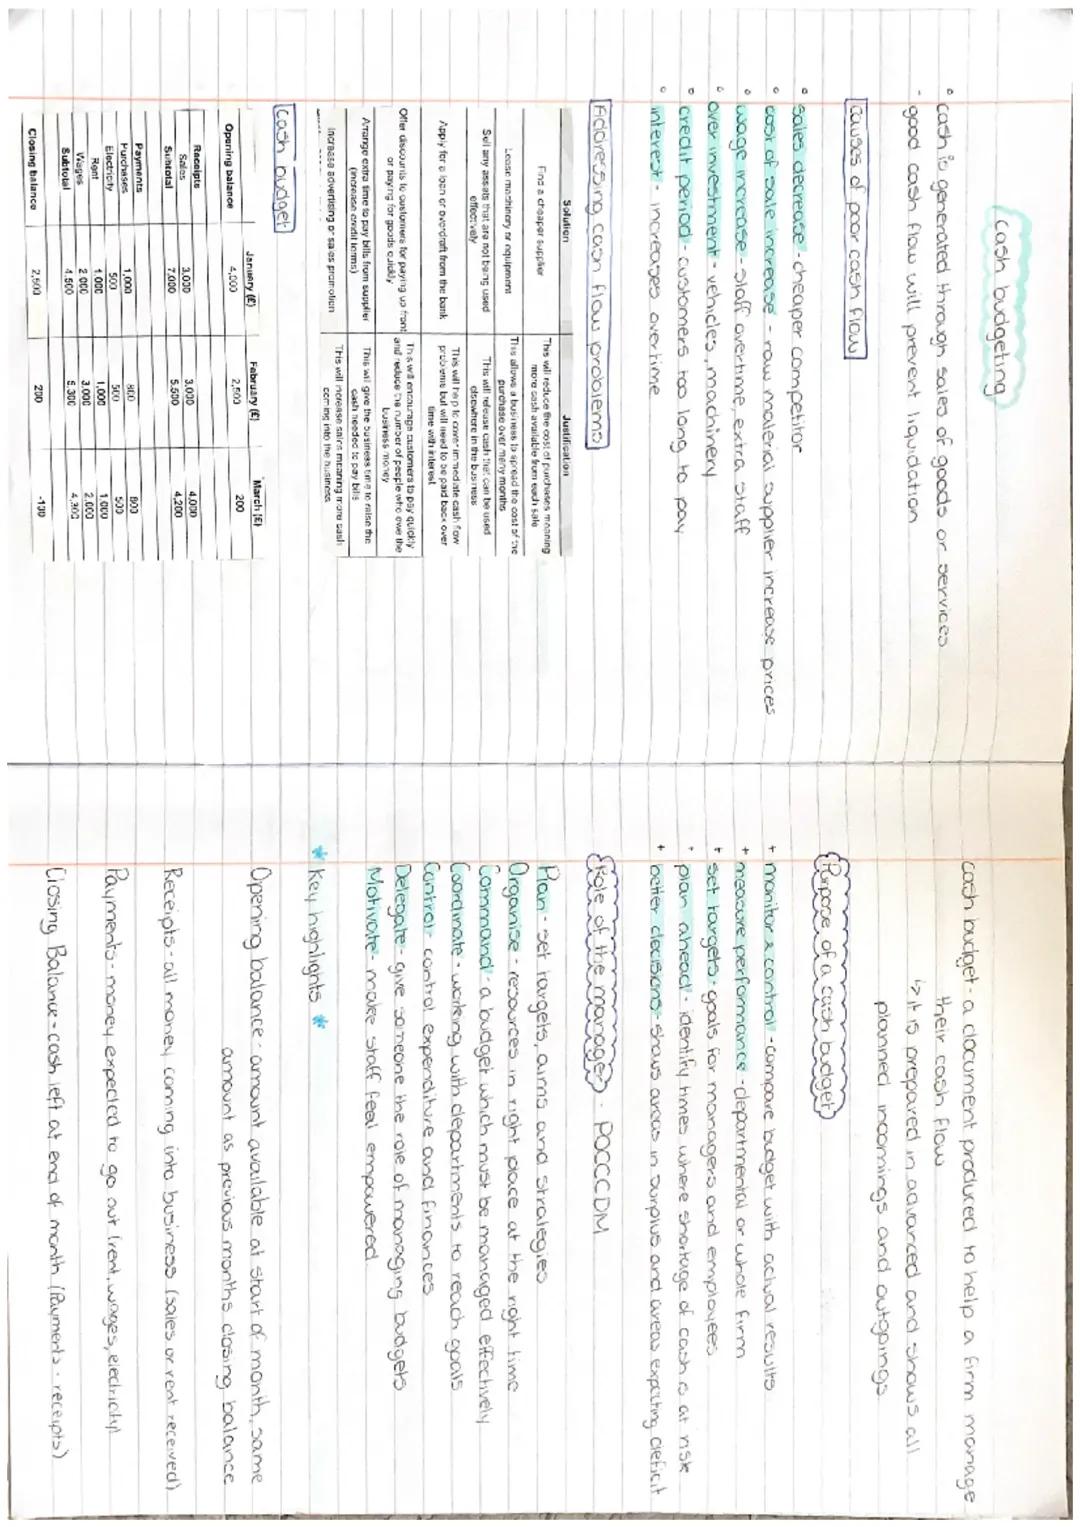 Cash budgeting
cash is generated through sales of goods or services
- good cash flow will prevent liquidation
Causes of poor cash flow
sales decrease - cheaper competitor
cost of sale increase - raw material supplier increase prices
wage increase - staff overtime, extra staff
over investment - vehicles, machinery
credit period - customers too long to pay
interest - increases overtime
Addressing cash flow problems
Solution Justification
Find a cheaper supplier This will reduce the cost of purchases meaning
more cash available from each sale
Lease machinery or equipment This allows a business to spread the cost of the
purchase over many months
Sell any assets that are not being used This will release cash that can be used
effectively elsewhere in the business
Apply for a loan or overdraft from the bank This will help to cover immediate cash flow
problems but will need to be paid back over
time with interest
Offer discounts to customers for paying up front This will encourage customers to pay quickly
or paying for goods quickly and reduce the number of people who owe the
business money
Arrange extra time to pay bills from supplier This will give the business time to raise the
(increase credit terms) cash needed to pay bills
Increase advertising or sales promotion This will increase sales meaning more cash
coming into the business
Cash budget
January (£) February (£) March (£)
Opening balance 4,000 2,500 200
Receipts
Sales 3,000 3,000 4,000
Subtotal 7,000 5,500 4,200
Payments
Purchases 1,000 800 800
Electricity 500 500 500
Rent 1,000 1,000 1,000
Wages 2 000 3 000 2,000
Subtotal 4 500 5 300 4,300
Closing balance 2,500 200 -100
cash budget - a document produced to help a firm manage
their cash flow
↳ it is prepared in advanced and shows all
planned incomings and outgoings
Purpose of a cash budget
+ monitor & control - compare budget with actual results
+ measure performance - departmental or whole firm
+ set targets - goals for managers and employees
+ plan ahead - identify times where shortage of cash is at risk
+ better decisions - shows areas in surplus and areas expecting deficit
Role of the manager - POCCCDM
Plan - set targets, aims and strategies
Organise - resources in right place at the right time
Command - a budget which must be managed effectively
Coordinate - working with departments to reach goals
Control - control expenditure and finances
Delegate - give someone the role of managing budgets
Motivate - make staff feel empowered
* Key highlights *
Opening balance - amount available at start of month, same
amount as previous months closing balance
Receipts - all money coming into business (sales or rent received)
Payments - money expected to go out (rent, wages, electricity)
Closing Balance - cash left at end of month (Payments - receipts)